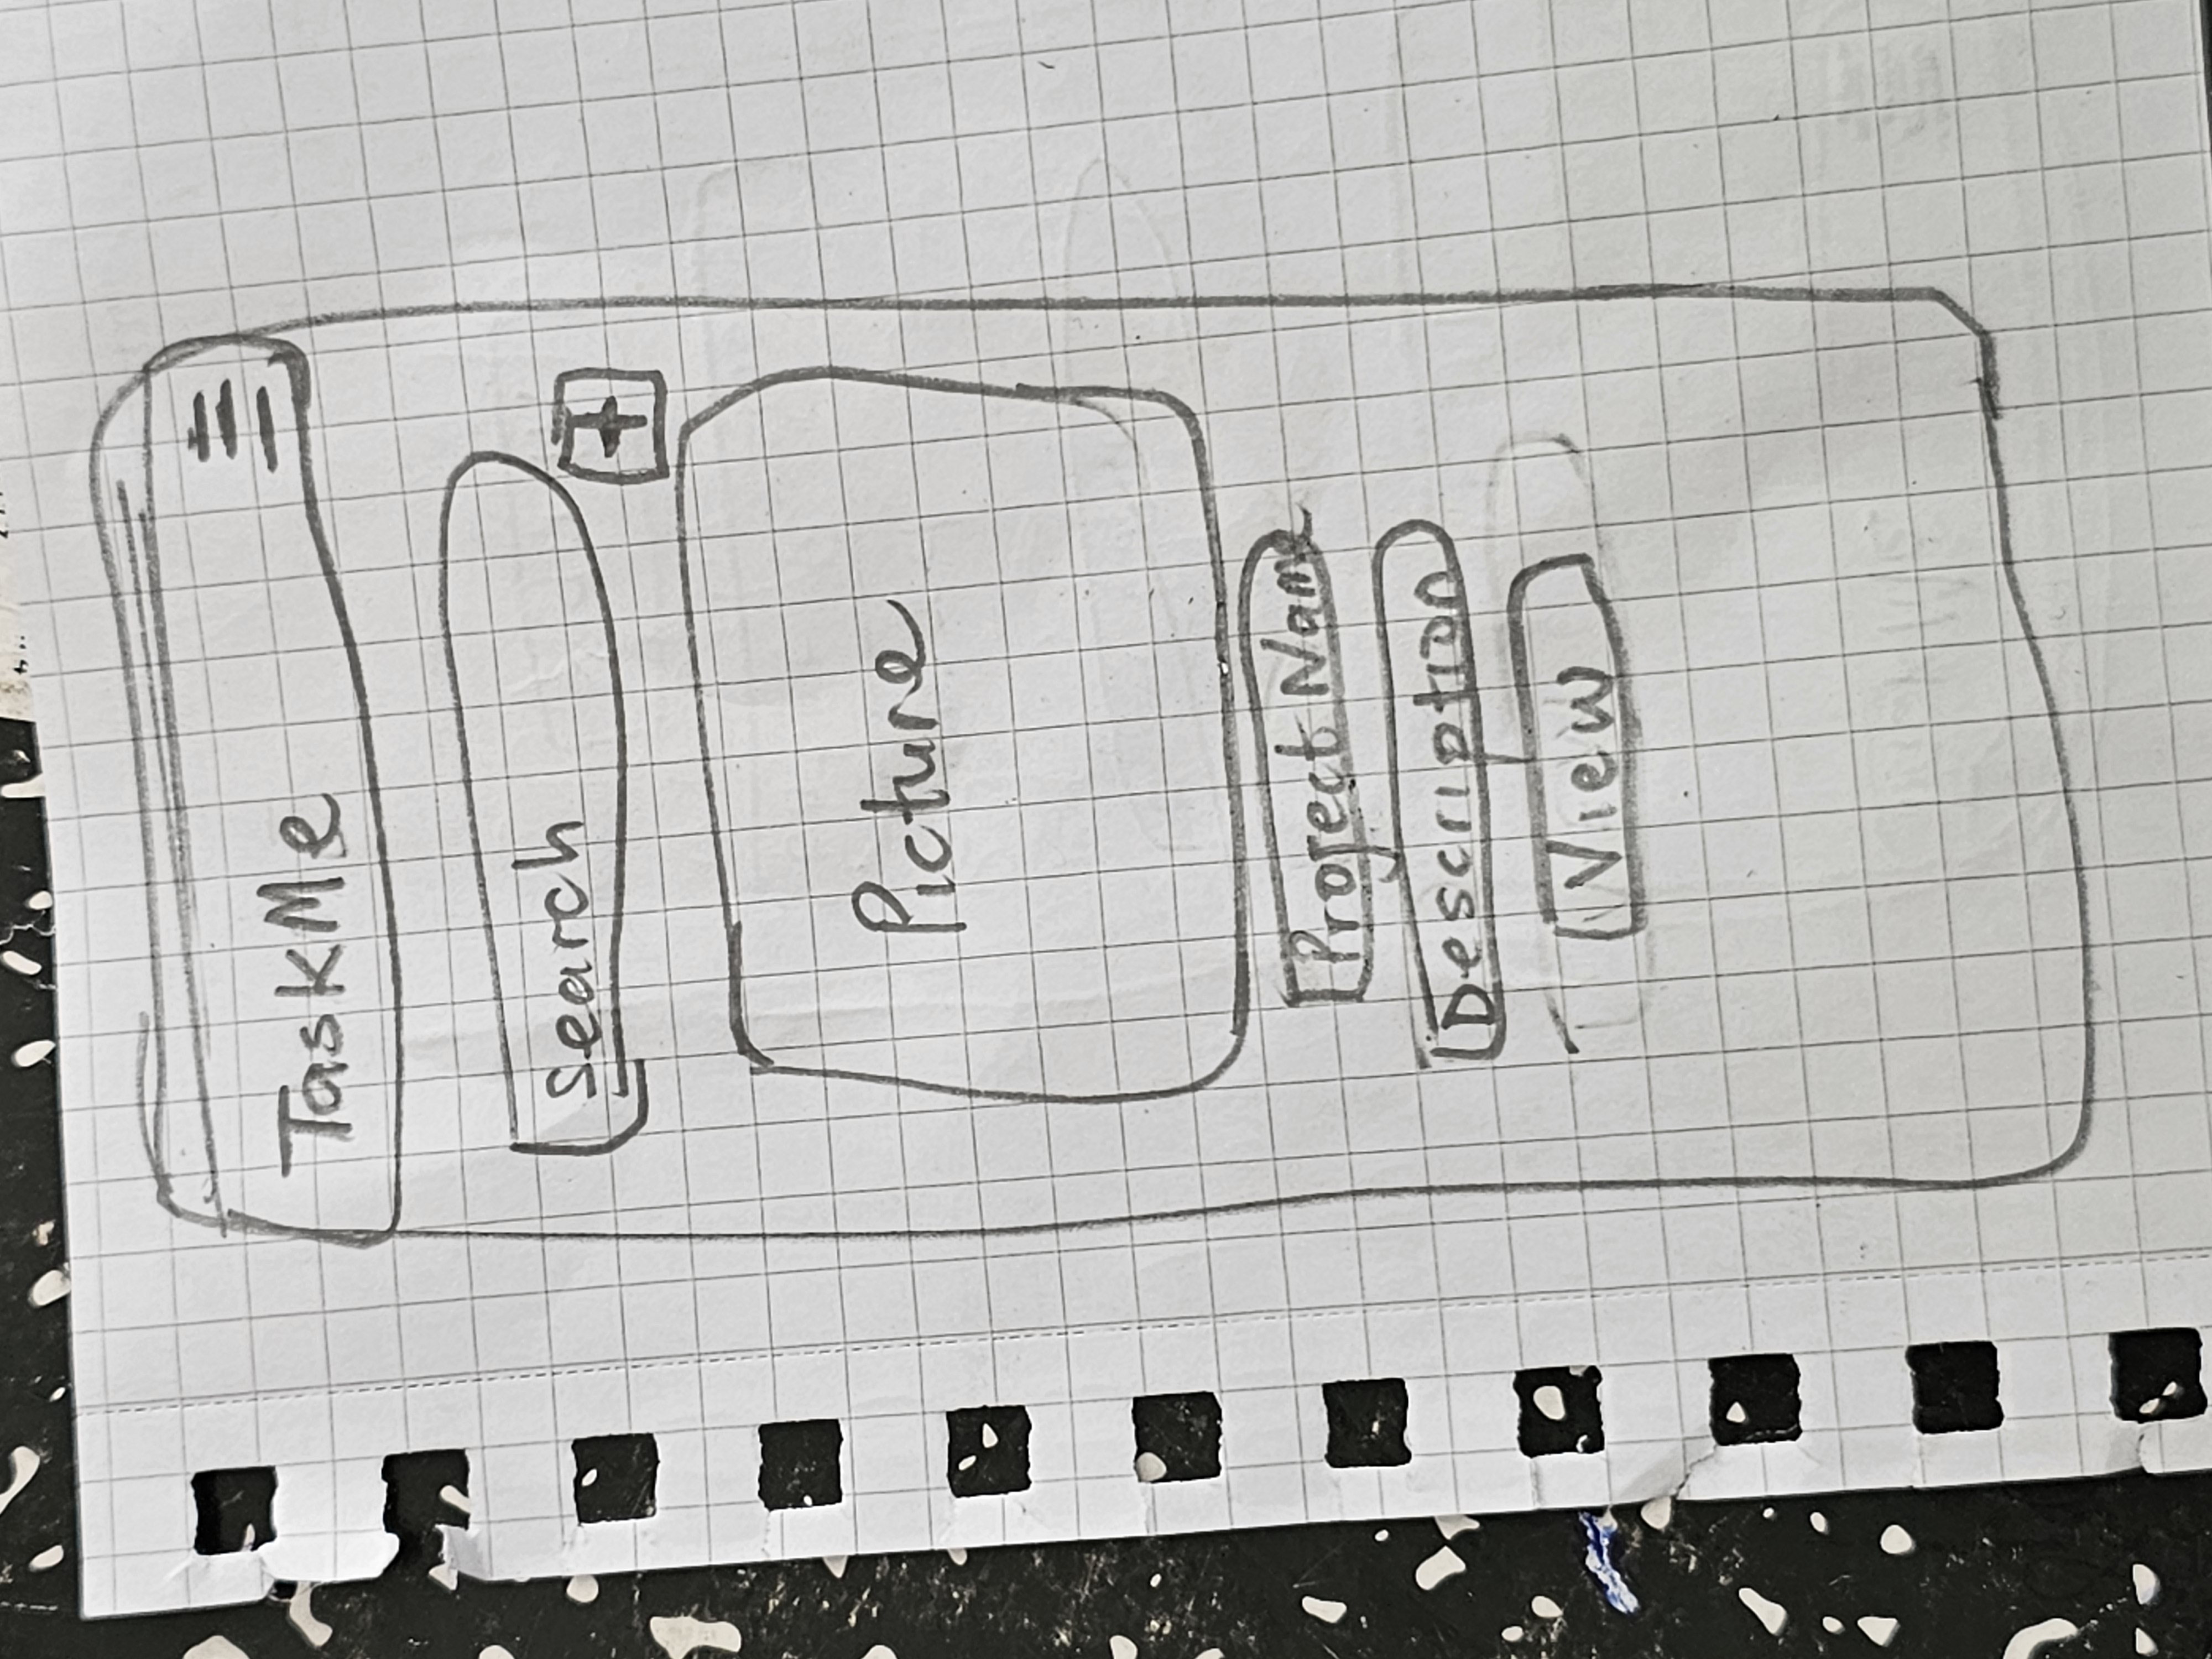 TaskMe
search
+
Picture
Project Name
Description
View